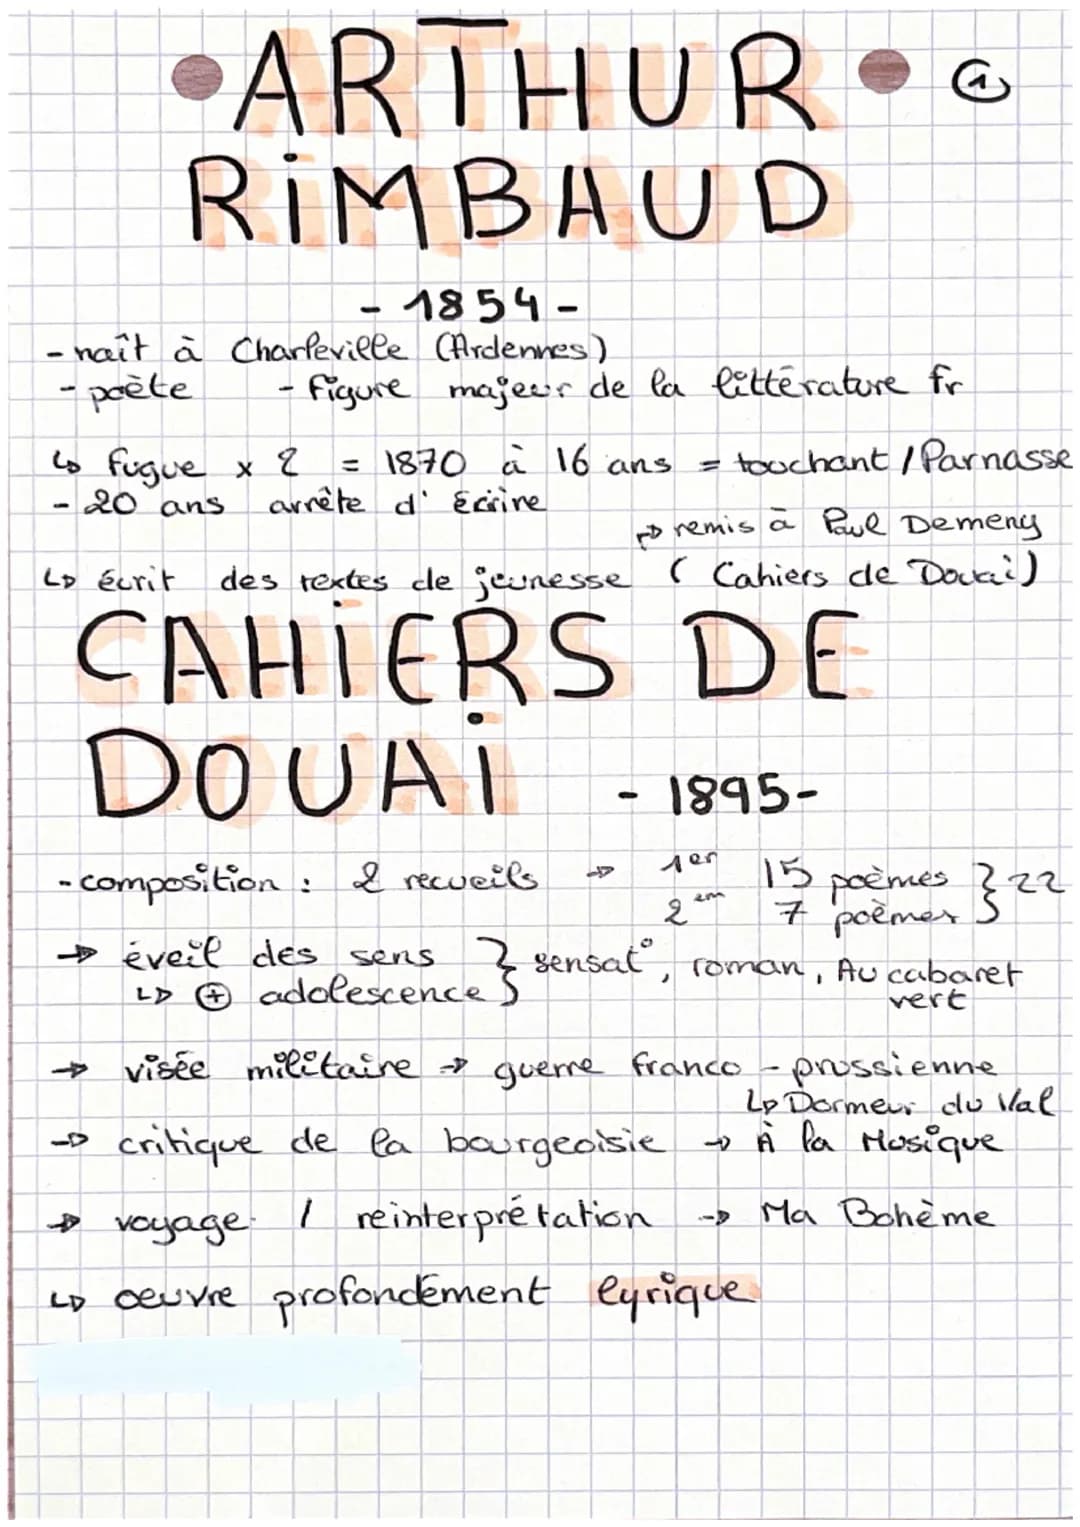 • ARTHUR • 1
RIMBAUD
- 1854 -
- naît à Charleville (Ardennes)
- poète - figure majeur de la littérature fr
↳ fugue x 2 = 1870 à 16 ans = touchant / Parnasse
- 20 ans arrête d'écrire
↱ remis à Paul Demeny
↳ écrit des textes de jeunesse ( Cahiers de Douai)
CAHIERS DE
DOUAI - 1895-
- composition : 2 recueils → 1er 15 poèmes } 22
2em 7 poèmes
→ éveil des sens } sensat°, roman, Au cabaret
↳ ⊕ adolescence vert
→ visée militaire → guerre franco - prussienne
↳ Dormeur du Val
→ critique de la bourgeoisie → À la Musique
→ voyage / reinterprétation → Ma Bohème
↳ oeuvre profondément lyrique